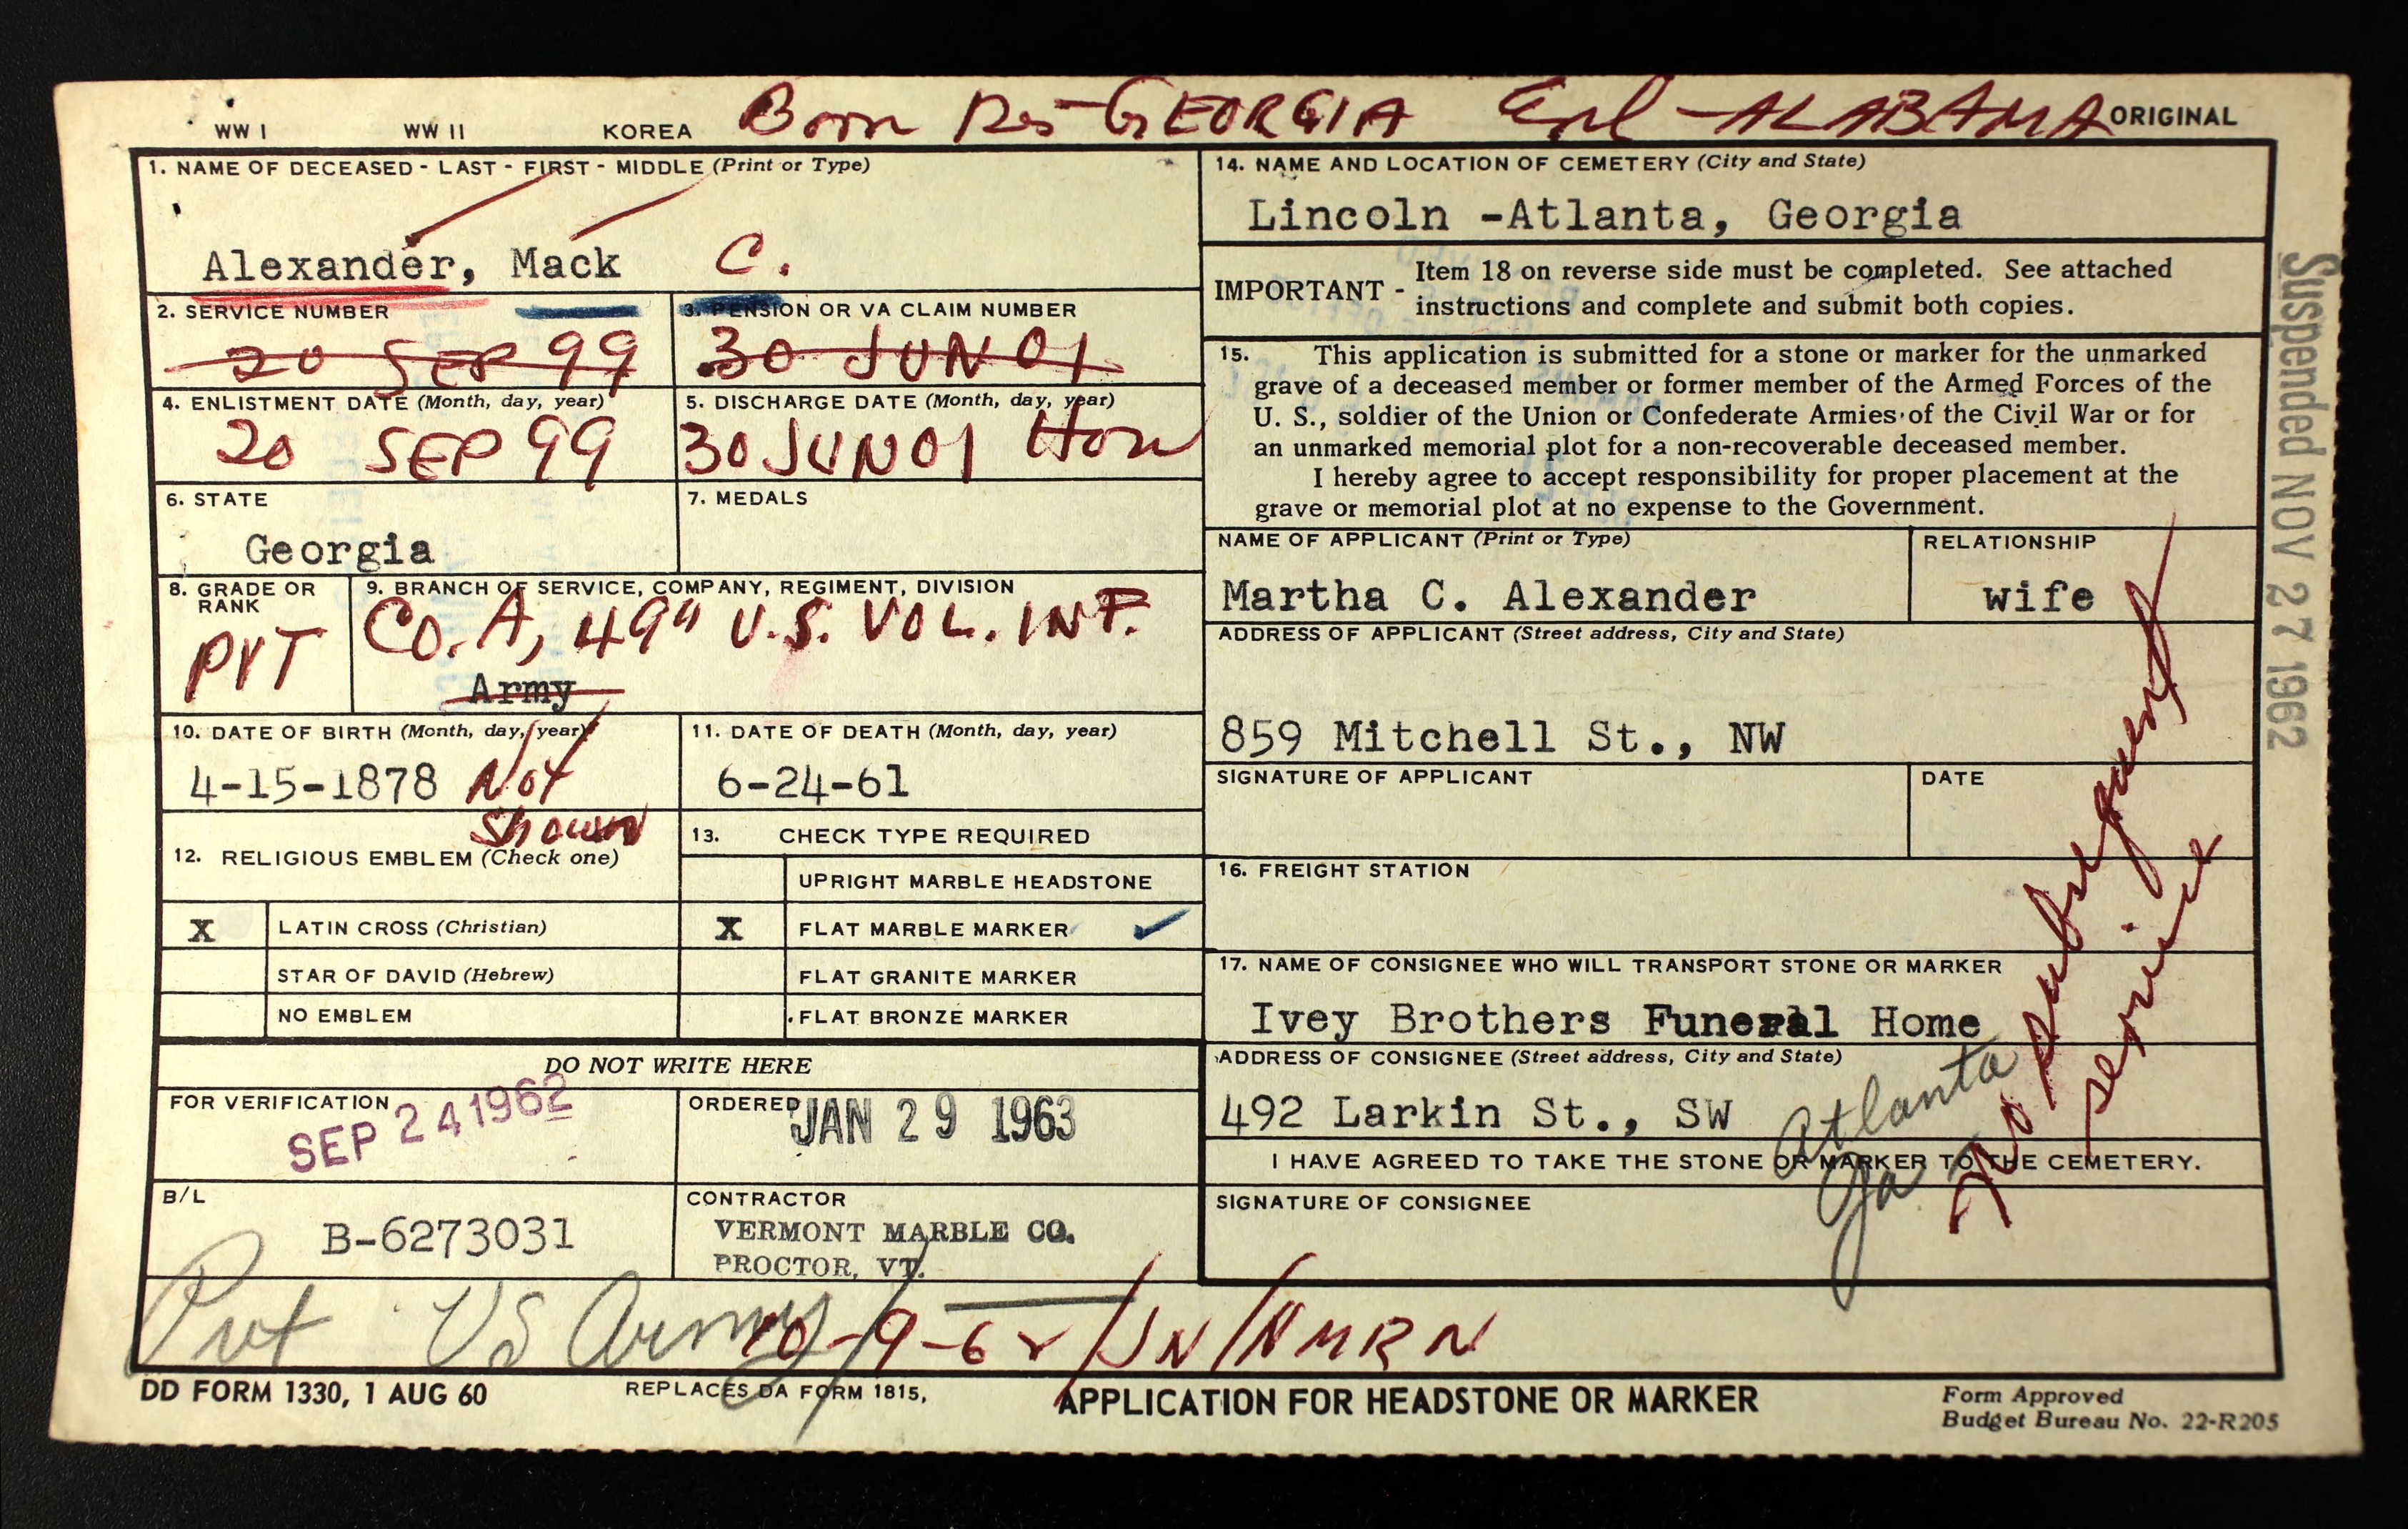 WW I WW II KOREA Born Res-GEORGIA Enl-ALABAMA ORIGINAL
1. NAME OF DECEASED - LAST - FIRST - MIDDLE (Print or Type)
Alexander, Mack C.
2. SERVICE NUMBER
20 SEP 99
3. PENSION OR VA CLAIM NUMBER
30 JUN 01
4. ENLISTMENT DATE (Month, day, year)
20 SEP 99
5. DISCHARGE DATE (Month, day, year)
30 JUN 01 Hon
6. STATE
Georgia
7. MEDALS
8. GRADE OR
RANK
PVT
9. BRANCH OF SERVICE, COMPANY, REGIMENT, DIVISION
CO. A, 49" U.S. VOL. INF.
Army
10. DATE OF BIRTH (Month, day, year)
4-15-1878 Not
Shown
11. DATE OF DEATH (Month, day, year)
6-24-61
12. RELIGIOUS EMBLEM (Check one)
X LATIN CROSS (Christian)
STAR OF DAVID (Hebrew)
NO EMBLEM
13. CHECK TYPE REQUIRED
UPRIGHT MARBLE HEADSTONE
X FLAT MARBLE MARKER ✓
FLAT GRANITE MARKER
FLAT BRONZE MARKER
DO NOT WRITE HERE
FOR VERIFICATION
SEP 24 1962
ORDERED
JAN 29 1963
B/L
B-6273031
CONTRACTOR
VERMONT MARBLE CO.
PROCTOR, VT.
14. NAME AND LOCATION OF CEMETERY (City and State)
Lincoln -Atlanta, Georgia
IMPORTANT - Item 18 on reverse side must be completed. See attached
instructions and complete and submit both copies.
15. This application is submitted for a stone or marker for the unmarked
grave of a deceased member or former member of the Armed Forces of the
U. S., soldier of the Union or Confederate Armies of the Civil War or for
an unmarked memorial plot for a non-recoverable deceased member.
I hereby agree to accept responsibility for proper placement at the
grave or memorial plot at no expense to the Government.
NAME OF APPLICANT (Print or Type)
Martha C. Alexander
RELATIONSHIP
wife
ADDRESS OF APPLICANT (Street address, City and State)
859 Mitchell St., NW
SIGNATURE OF APPLICANT
DATE
16. FREIGHT STATION
17. NAME OF CONSIGNEE WHO WILL TRANSPORT STONE OR MARKER
Ivey Brothers Funeral Home
ADDRESS OF CONSIGNEE (Street address, City and State)
492 Larkin St., SW
Atlanta
Ga
I HAVE AGREED TO TAKE THE STONE OR MARKER TO THE CEMETERY.
SIGNATURE OF CONSIGNEE
No subsequent
service
Suspended NOV 27 1962
Pvt US Army 10-9-62/JN/NMRN
DD FORM 1330, 1 AUG 60 REPLACES DA FORM 1815, APPLICATION FOR HEADSTONE OR MARKER
Form Approved
Budget Bureau No. 22-R205